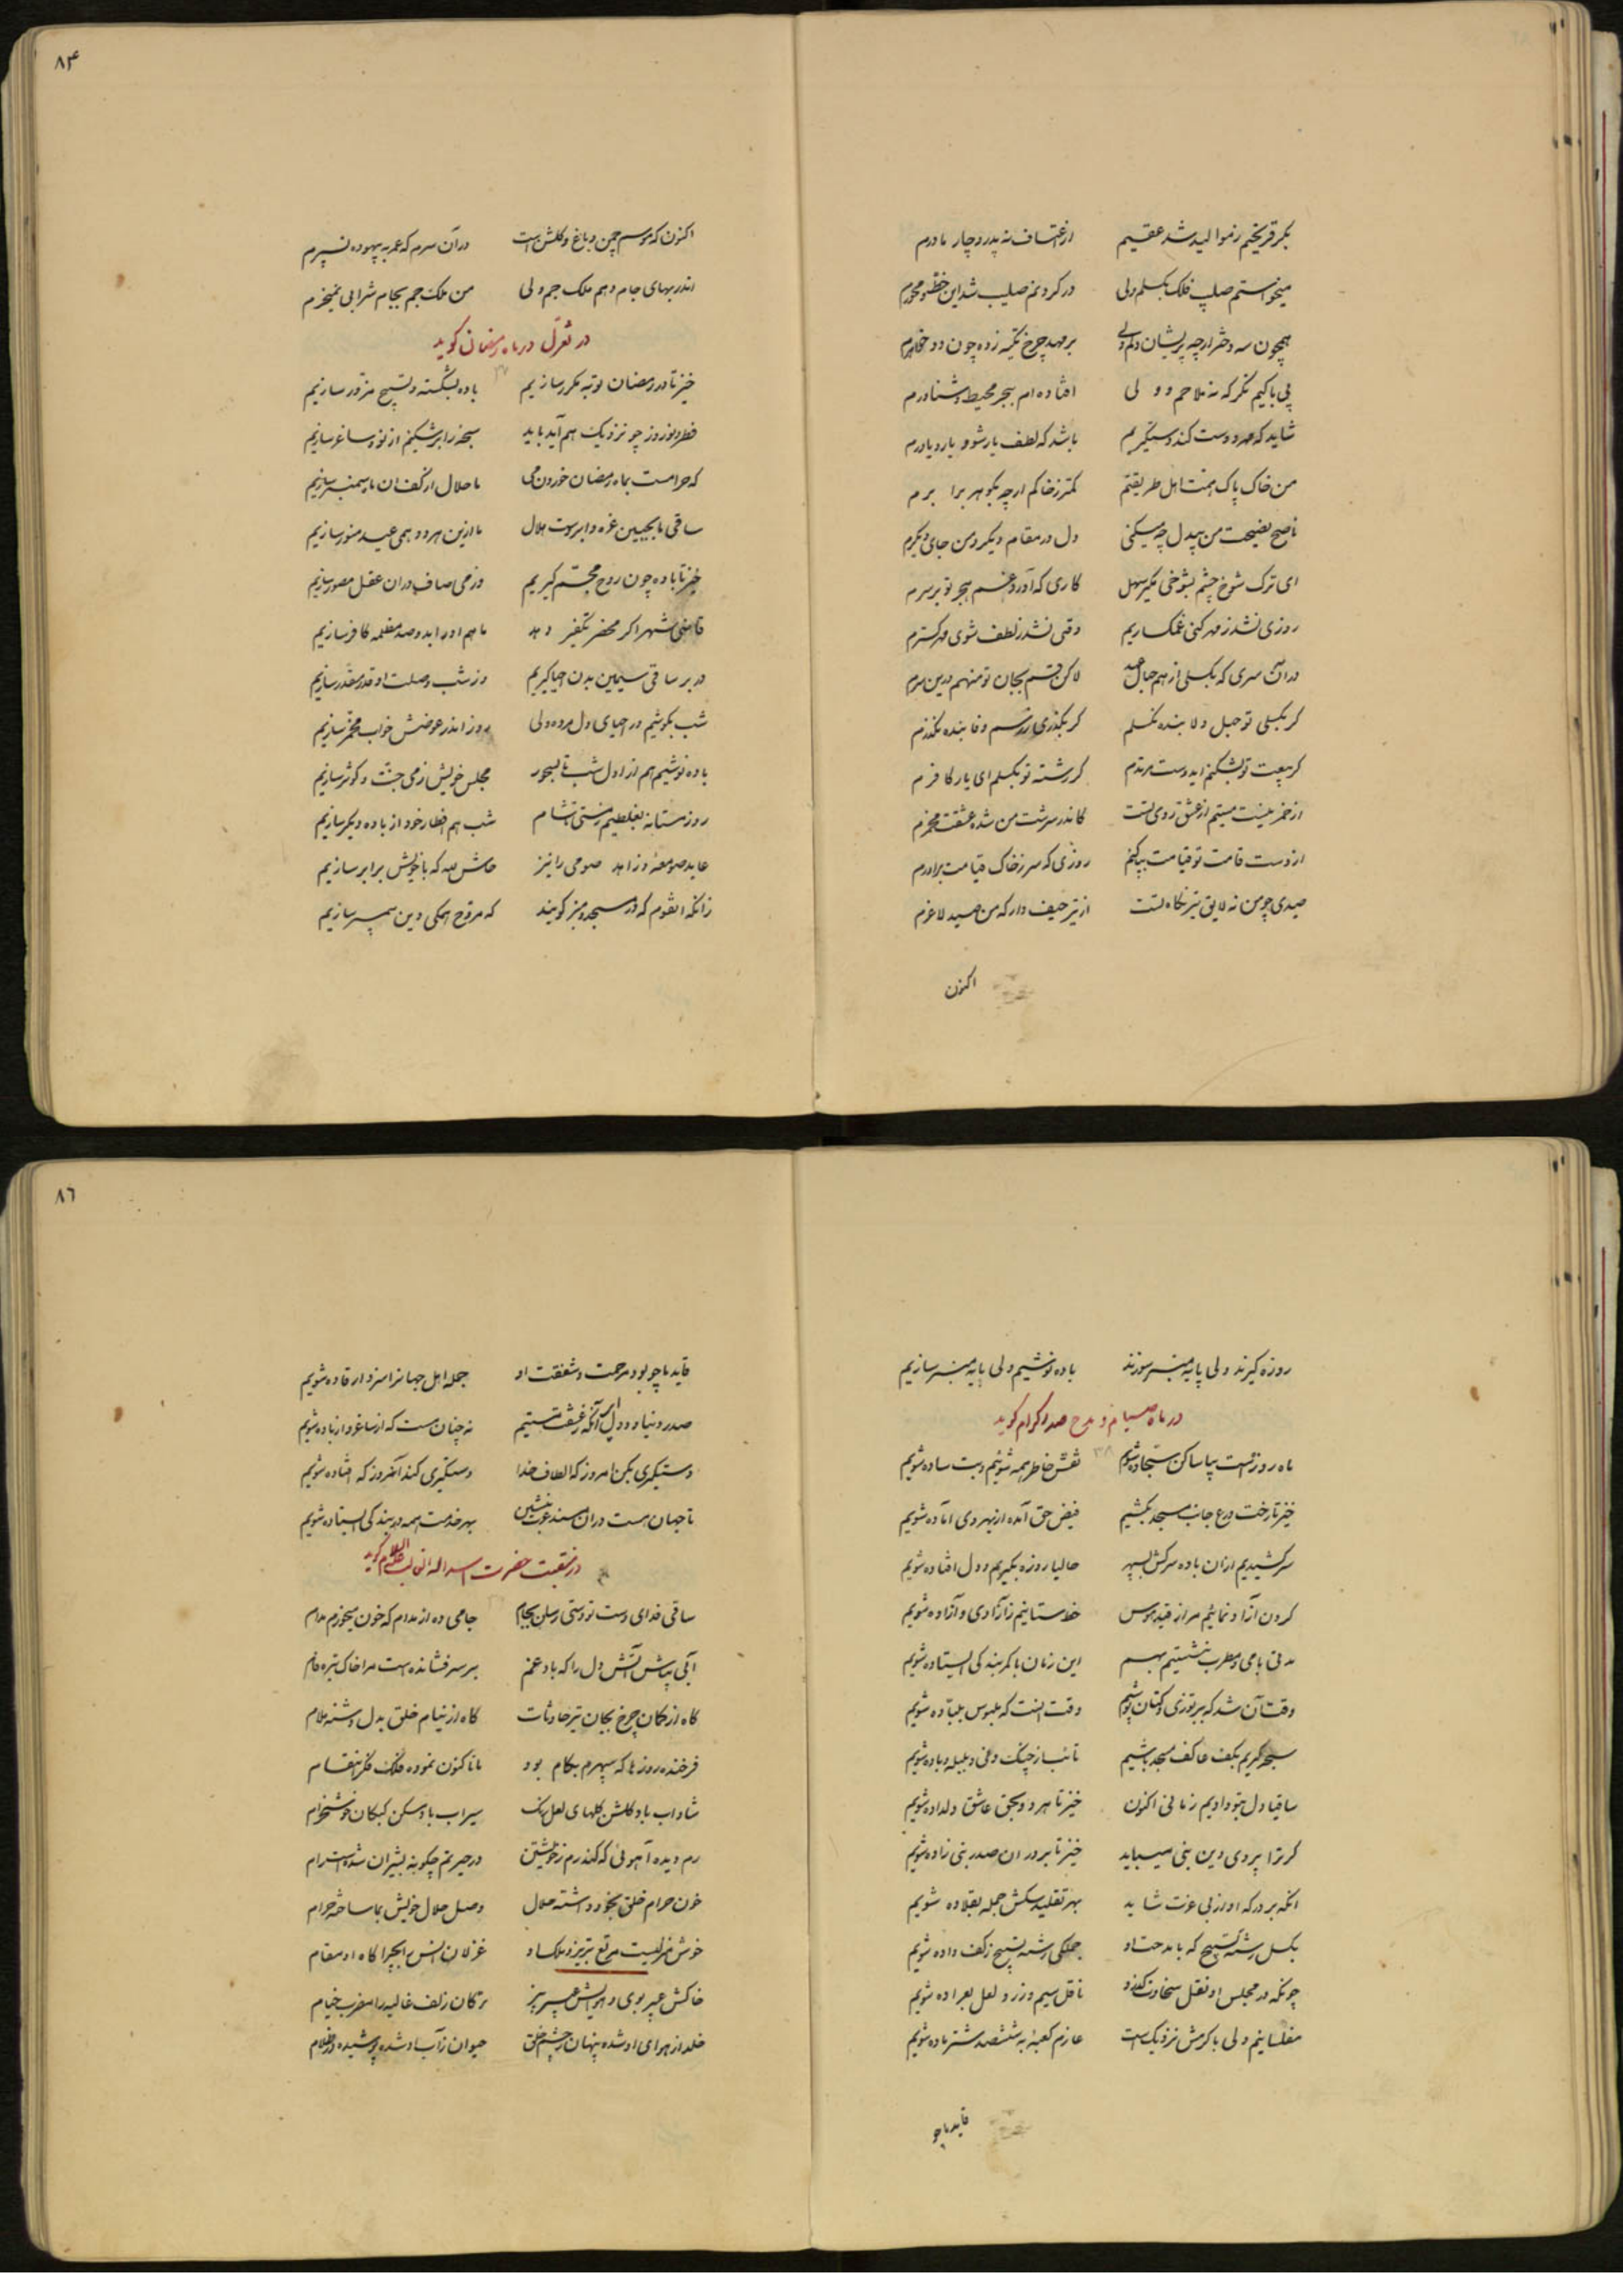 بکر قریحتم ز موالید شد عقیم از اعتساف نه پدر و چار مادرم
میخواستم صلیب فلک بگسلم ولی در گردنم صلیب شد این خط محورم
همچون سه دختر ارچه پریشان دلم ولی بر مهد چرخ تکیه زده چون دو خواهرم
بی باکیم نگر که نه ملاحم و ولی افتاده‌ام ببحر محیط و شناورم
شاید که مهر دوست کند دستگیریم باشد که لطف یار شود یار و یاورم
من خاک پاک همت اهل طریقتم کمتر ز خاکم ارچه بگوهر برابرم
ناصح نصیحت من بیدل چه میکنی دل در مقام دیگر و من جای دیگرم
ای ترک شوخ چشم بشوخی مگیر سهل کاری که آورد غم هجر تو بر سرم
روزی نشد ز مهر کنی غمگساریم وقتی نشد ز لطف شوی مهرگسترم
در آن سری که بگسلی از هم حبال عهد لاکن قسم بجان تو منهم درین سرم
گر بگسلی تو حبل ولا بنده نگسلم گر بگذری ز رسم وفا بنده نگذرم
گر بیعت تو بشکنم ایدوست مرتدم گر رشته تو بگسلم ای یار کافرم
از خمر نیست مستیم از عشق روی تست کاندر سرشت من شده عشقت مخمرم
از دست قامت تو قیامت بپا کنم روزی که سر ز خاک قیامت برآورم
صیدی چو من نه لایق تیر نگاه تست از تیر حیف دار که من صید لاغرم
اکنون
۸۴
اکنون که موسم چمن و باغ و گلشن است در آن سرم که عمر به بیهوده نسپرم
اندر بهای جام دهم ملک جم ولی من ملک جم بجام شرابی نمیخرم
در تغزل در ماه رمضان گوید
۳۷
خیز تا در رمضان توبه مکرر سازیم باده بشکسته و تسبیح مزور سازیم
فطر و نوروز چو نزدیک هم آید باید سبحه را بر شکنیم از نو و ساغر سازیم
که حرامست بماه رمضان خوردن می ما حلال از کف آن ماه سمنبر سازیم
ساقی ما بجبین غره و ابروست هلال ما ازین هر دو همی عید منور سازیم
خیز تا باده چون روح مجسم گیریم وز می صاف در آن عقل مصور سازیم
قاضی شهر اگر محضر تکفیر دهد ما هم او را بدو صد مظلمه کافر سازیم
در بر ساقی سیمین بدن احیا گیریم وز شب وصلت او قدر مقدر سازیم
شب بکوشیم در احیای دل مرده ولی روز اندر عوضش خواب مخمر سازیم
باده نوشیم هم از اول شب تا بسحور مجلس خویش ز می جنت و کوثر سازیم
روز مستانه بغلطیم ز مستی تا شام شب هم افطار خود از باده دیگر سازیم
عابد صومعه و زاهد صومی را نیز حاش لله که با خویش برابر سازیم
زانکه انقوم که در مسجد و منبر گویند که مروج همگی دین پیمبر سازیم
روزه گیرند ولی پایه منبر سوزند باده نوشیم ولی پایه منبر سازیم
در ماه صیام و مدح صدر کرام گوید
۳۸
ماه روزه است بیا ساکن سجاده شویم نقش خاطر همه شوئیم و بت ساده شویم
خیز تا رخت ورع جانب مسجد بکشیم فیض حق آمده از بهر وی آماده شویم
سر کشیدیم از آن باده سرکش بسپهر حالیا روزه بگیریم و دل افتاده شویم
گردن آزاد نمائیم مر از قید هوس خط ستانیم ز آزادی و آزاده شویم
مدتی با می و مطرب بنشستیم بهم این زمان با کمر بندگی استاده شویم
وقت آن شد که بر توزی و کتان پوشیم وقت انست که ملبوس بلباده شویم
سبحه گیریم بکف عاکف مسجد باشیم تائب از چنگ و نی و بلبله و باده شویم
ساقیا دل بتو دادیم زمانی اکنون خیز تا هر دو بحق عاشق دلداده شویم
گر ترا پیروی دین نبی میباید خیز تا بر در ان صدر نبی زاده شویم
انکه بر درگه او از پی عزت شاید بهر تقلید سگش جمله بقلاده شویم
بگسل رشته تسبیح که با مدحت او جملگی رشته تسبیح ز کف داده شویم
چونکه در مجلس او نقل سخاوت گذرد ناقل سیم و زر و لعل بعراده شویم
مفلسانیم ولی با کرمش نزدیکست عازم کعبه به ششصد شتر ماده شویم
قاید ما چو
۸۶
قاید ما چو بود مرحمت و شفقت او جمله اهل جهانرا سزد ار قاده شویم
صدر دنیا و دول ای آنکه ز عشقت مستیم نه چنان مست که از ساغر و از باده شویم
دستگیری بکن امروز که الطاف خدا دستگیری کند آنروز که افتاده شویم
تا جهان هست در آن مسند عزت بنشین بهر خدمت همه در بندگی استاده شویم
در منقبت حضرت اسدالله الغالب علیه السلام گوید
ساقی فدای دست تو دستی رسان بجام جامی ده از مدام که خون میخورم مدام
آبی بپاش آتش دل را که باد غم بر سر فشانده است مرا خاک تیره فام
گاه از کمان چرخ بجان تیر حادثات گاه از نیام خلق بدل دشنه ملام
فرخنده روزها که سپهرم بکام بود مانا کنون نموده فلک فکر انتقام
شاداب باد گلشن گلهای لعل رنگ سیراب باد مسکن کبکان خوشخرام
رم دیده آهوئی که کند رم ز خویشتن در حیرتم چگونه بشیران شده است رام
خون حرام خلق بخود داشته حلال وصل حلال خویش بما ساخته حرام
خوش منزلیست مرتع تبریز و ملک او غزلان انس را بچراگاه او مقام
خاکش عبیر بوی و هوایش عبیر بیز ترکان زلف غالیه را مضرب خیام
خلد از هوای او شده پنهان ز چشم خلق حیوان ز آب او شده پوشیده در ظلام